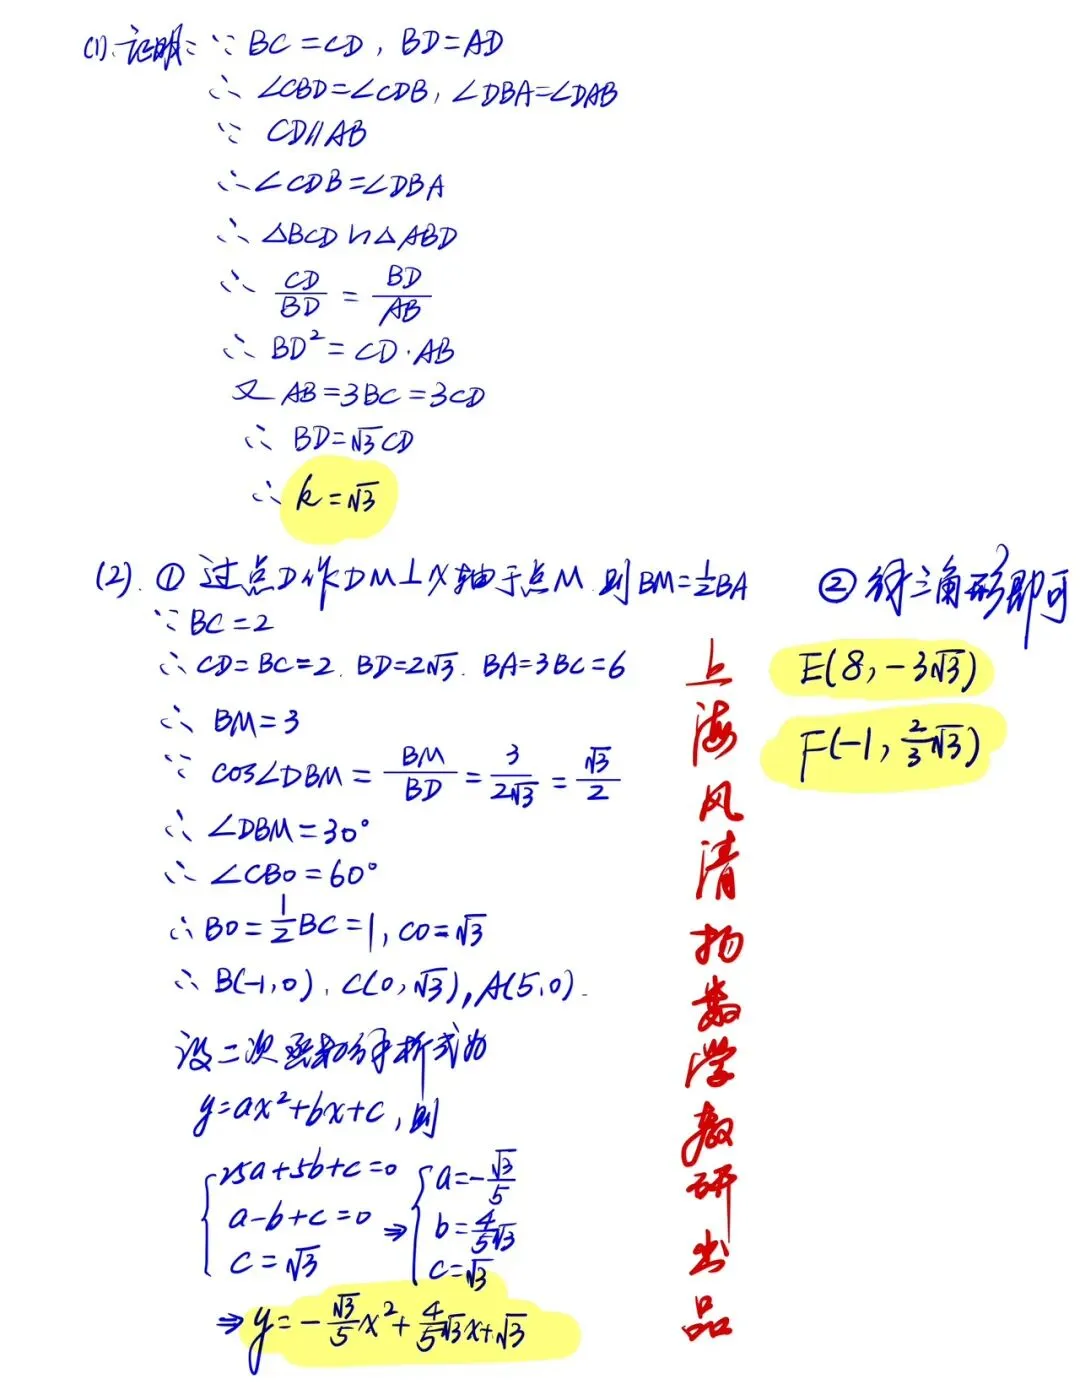 (1). 证明: ∵ BC=CD, BD=AD
∴ ∠CBD=∠CDB, ∠DBA=∠DAB
∵ CD∥AB
∴ ∠CDB=∠DBA
∴ △BCD∽△ABD
∴ CD/BD = BD/AB
∴ BD²=CD·AB
又 AB=3BC=3CD
∴ BD=√3CD
∴ k=√3
(2). ① 过点D作DM⊥x轴于点M. 则BM=1/2BA
∵ BC=2
∴ CD=BC=2. BD=2√3. BA=3BC=6
∴ BM=3
∵ cos∠DBM = BM/BD = 3/2√3 = √3/2
∴ ∠DBM=30°
∴ ∠CBO=60°
∴ BO=1/2BC=1, CO=√3
∴ B(-1,0), C(0,√3), A(5,0).
设二次函数解析式为
y=ax²+bx+c, 则
{25a+5b+c=0 {a=-√3/5
a-b+c=0 ⇒ b=4/5√3
c=√3 c=√3
⇒ y=-√3/5x²+4/5√3x+√3
② 解三角形即可
E(8,-3√3)
F(-1,2/3√3)
上海风清扬数学教研出品